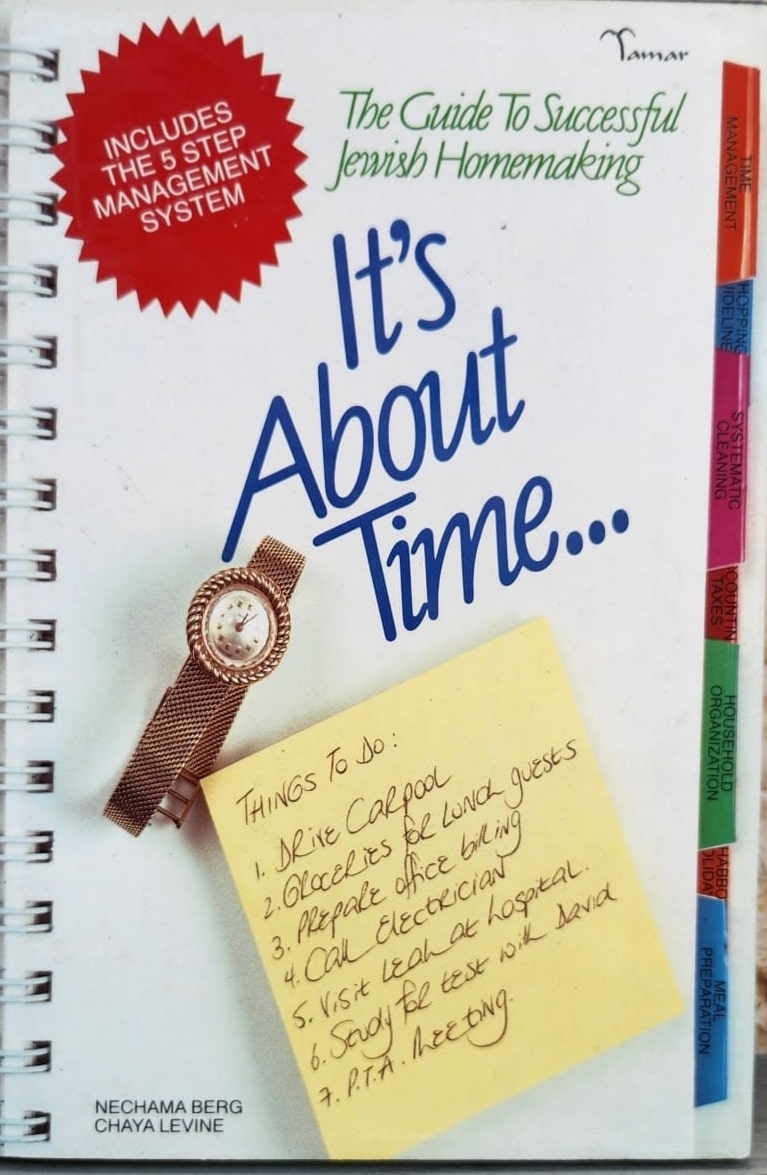 Tamar
INCLUDES
THE 5 STEP
MANAGEMENT
SYSTEM
The Guide To Successful
Jewish Homemaking
It's
About
Time...
THINGS TO DO:
1. DRIVE CARPOOL
2. GROCERIES for LUNCH guests
3. PREPARE office billing
4. CALL Electrician
5. Visit Leah at hospital.
6. Study for test with David
7. P.T.A. MEETING.
NECHAMA BERG
CHAYA LEVINE
TIME
MANAGEMENT
SYSTEMATIC
CLEANING
TAXES
HOUSEHOLD
ORGANIZATION
MEAL
PREPARATION